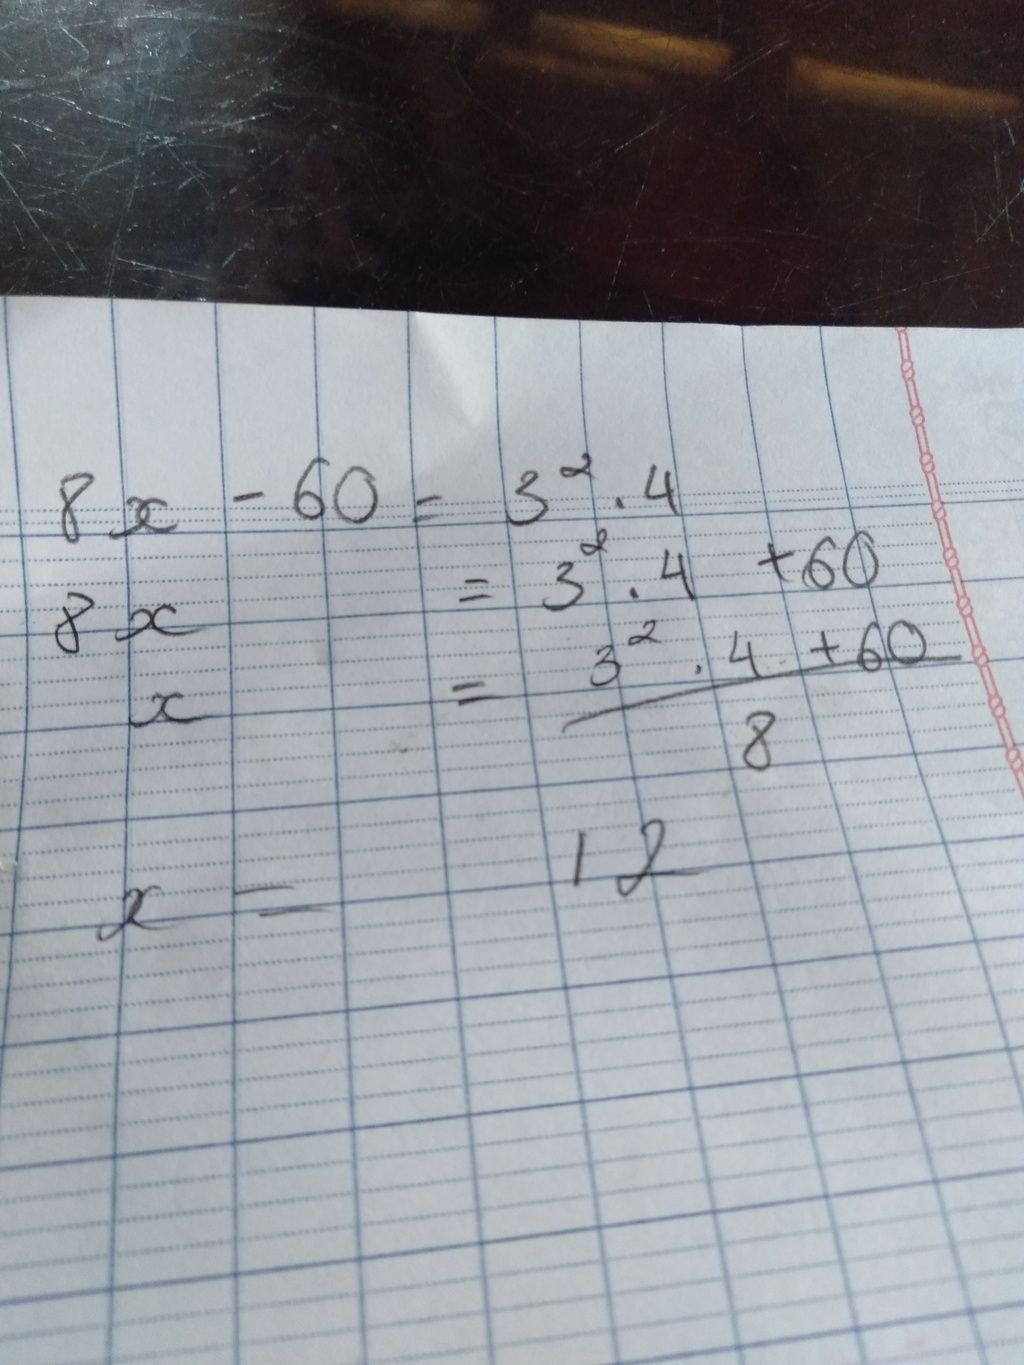 8x - 60 = 3² . 4
8x = 3² . 4 + 60
x = 3² . 4 + 60
8
x = 12